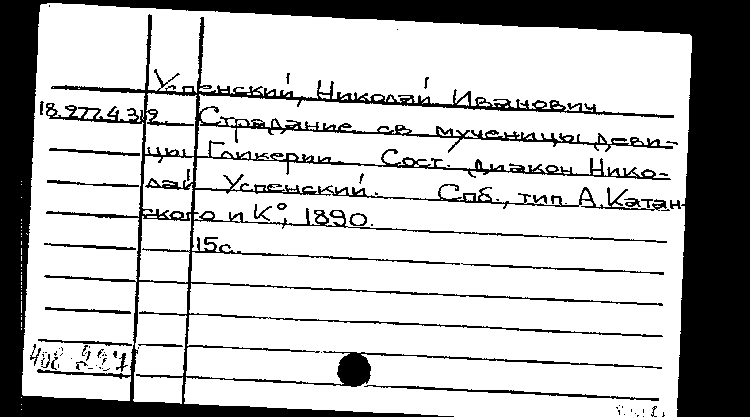 Успенский, Николай Иванович
18.277.4.312. Страдание св мученицы деви-
цы Гликерии. Сост. диакон Нико-
лай Успенский. Спб., тип А. Катан-
ского и К°, 1890.
15с.
408 227